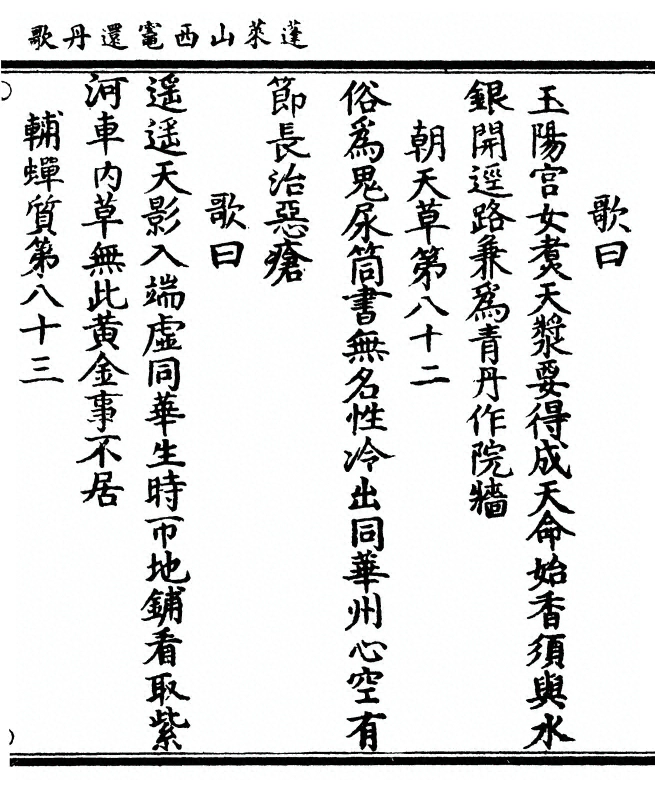 蓬萊山西竈還丹歌
歌曰
玉陽宮女煑天漿要得成天命始香須與水
銀開逕路兼爲青丹作院牆
朝天草第八十二
俗爲鬼尿筒書無名性冷出同華州心空有
節長治惡瘡
歌曰
遥遥天影入端虛同華生時帀地鋪看取紫
河車内草無此黄金事不居
輔蟬質第八十三